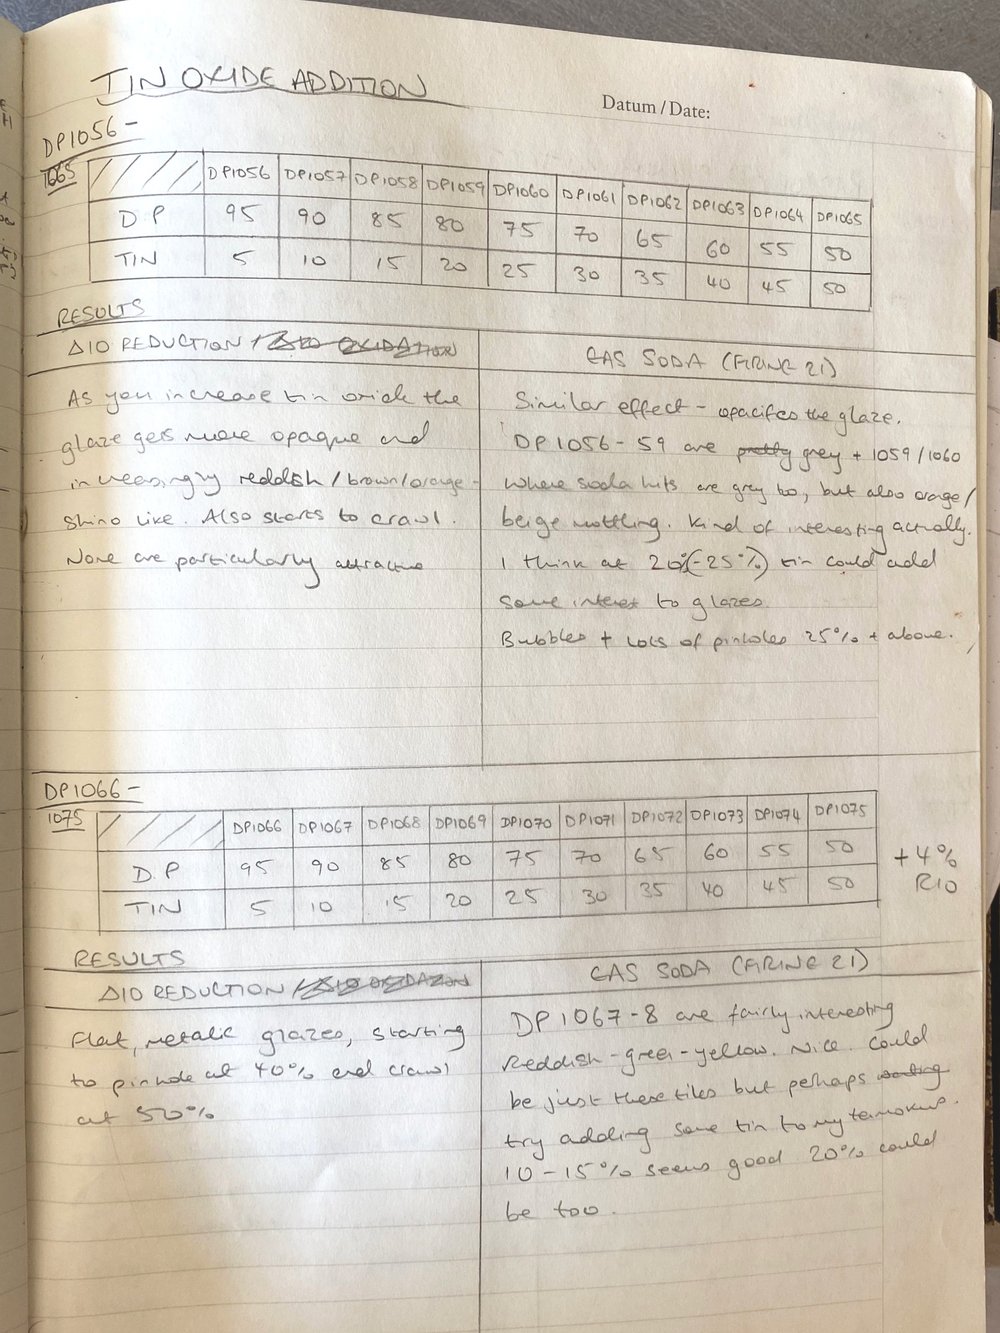 TIN OXIDE ADDITION
Datum / Date:
DP1056 -
1065
DP1056 DP1057 DP1058 DP1059 DP1060 DP1061 DP1062 DP1063 DP1064 DP1065
DP 95 90 85 80 75 70 65 60 55 50
TIN 5 10 15 20 25 30 35 40 45 50
RESULTS
Δ10 REDUCTION / Δ10 OXIDATION
As you increase tin oxide the
glaze gets more opaque and
increasingly reddish/brown/orange -
shino like. Also starts to crawl.
None are particularly attractive
GAS SODA (FIRING 21)
Similar effect - opacifes the glaze.
DP1056-59 are pretty grey + 1059/1060
where soda hits are grey too, but also orange/
beige mottling. Kind of interesting actually.
I think at 20%(-25%) tin could add
some interest to glazes.
Bubbles + lots of pinholes 25% + above.
DP1066 -
1075
DP1066 DP1067 DP1068 DP1069 DP1070 DP1071 DP1072 DP1073 DP1074 DP1075
D.P 95 90 85 80 75 70 65 60 55 50
TIN 5 10 15 20 25 30 35 40 45 50
+ 4%
RIO
RESULTS
Δ10 REDUCTION / Δ10 OXIDATION
Flat, metalic glazes, starting
to pinhole at 40% and crawl
at 50%
GAS SODA (FIRING 21)
DP1067-8 are fairly interesting
Reddish-green-yellow. Nice. Could
be just these tiles but perhaps
try adding some tin to my tenmokus.
10-15% seems good 20% could
be too.